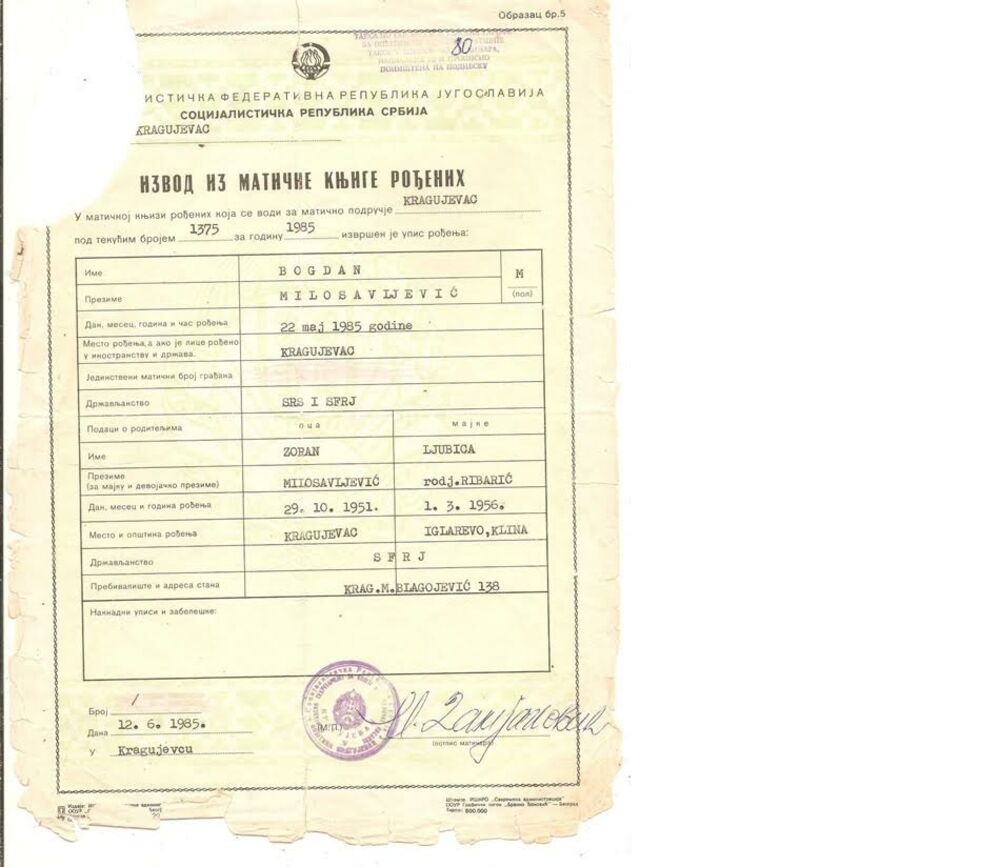 Образац бр.5
80
ИСТИЧКА ФЕДЕРАТИВНА РЕПУБЛИКА ЈУГОСЛАВИЈА
СОЦИЈАЛИСТИЧКА РЕПУБЛИКА СРБИЈА
KRAGUJEVAC
ИЗВОД ИЗ МАТИЧНЕ КЊИГЕ РОЂЕНИХ
У матичној књизи рођених која се води за матично подручје KRAGUJEVAC
под текућим бројем 1375 за годину 1985 извршен је упис рођења:
Име BOGDAN M
Презиме MILOSAVLJEVIĆ (пол)
Дан, месец, година и час рођења 22 maj 1985 godine
Место рођења, а ако је лице рођено
у иностранству и држава. KRAGUJEVAC
Јединствени матични број грађана
Држављанство SRS I SFRJ
Подаци о родитељима оца мајке
Име ZORAN LJUBICA
Презиме
(за мајку и девојачко презиме) MILOSAVLJEVIĆ rodj.RIBARIĆ
Дан, месец и година рођења 29. 10. 1951. 1. 3. 1956.
Место и општина рођења KRAGUJEVAC IGLAREVO,KLINA
Држављанство SFRJ
Пребивалиште и адреса стана KRAG.M.BLAGOJEVIĆ 138
Накнадни уписи и забелешке:
Број /
Дана 12. 6. 1985.
У Kragujevcu
(М.П.)
(потпис матичара)